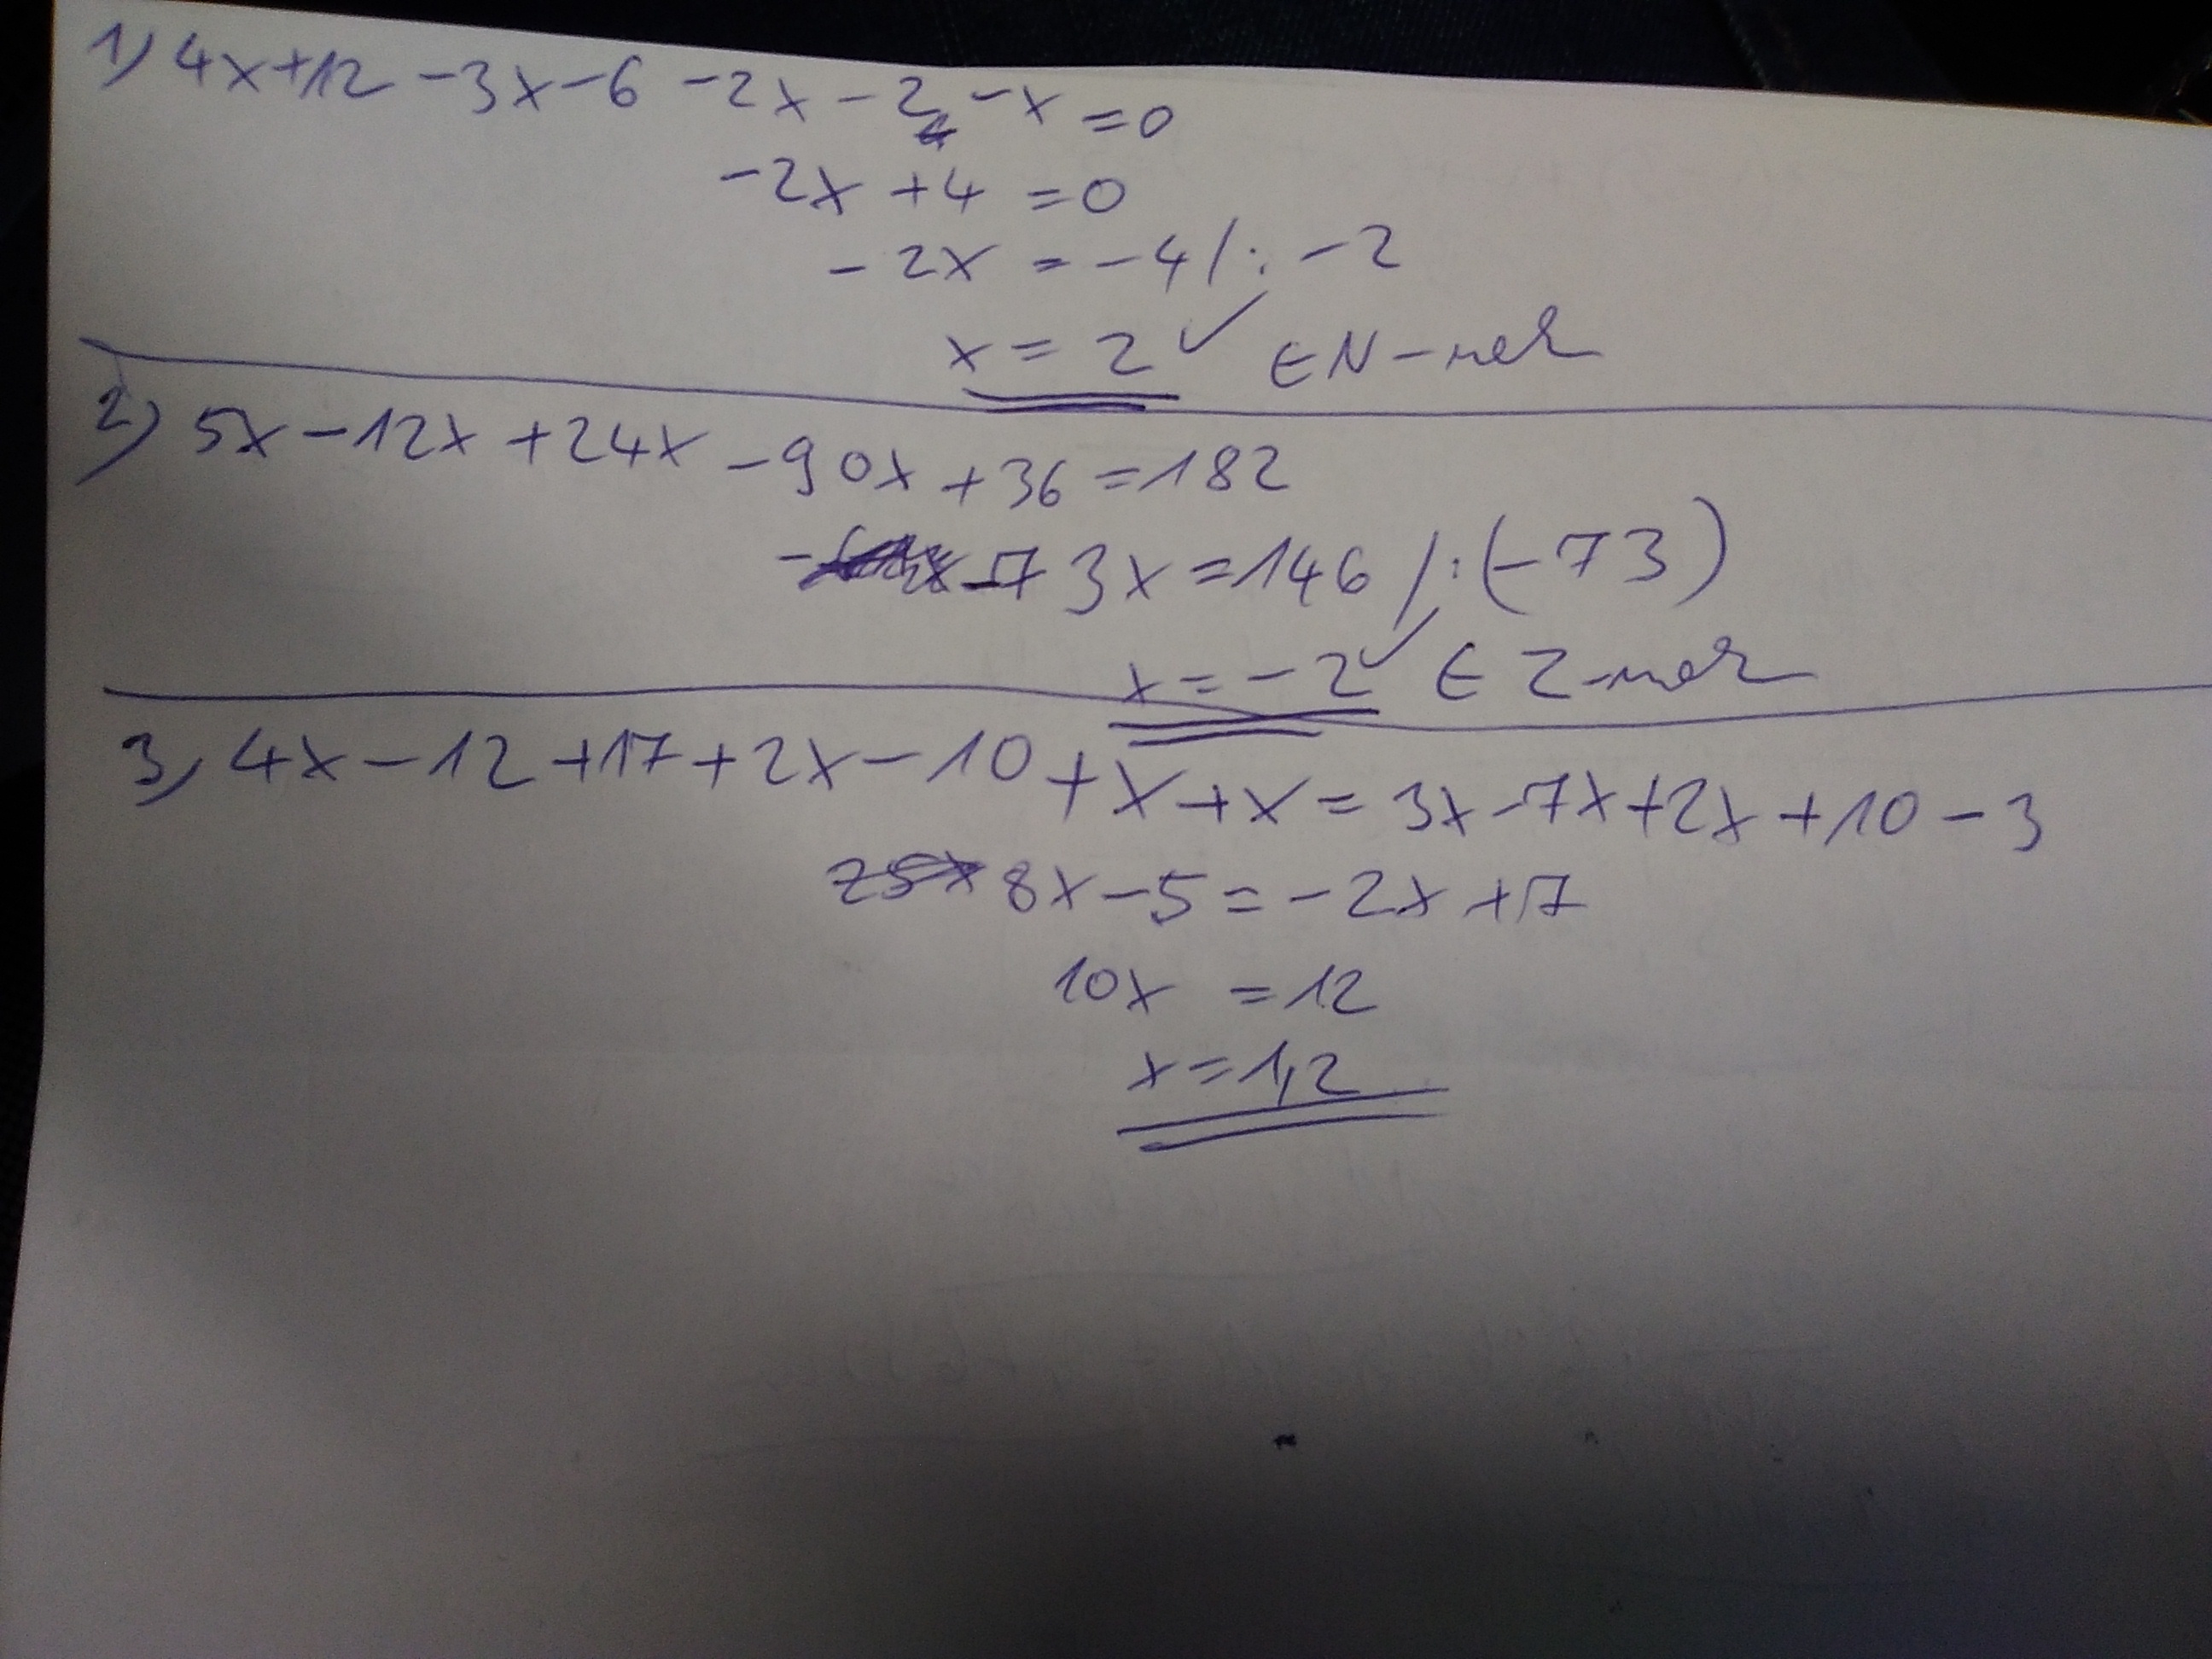 1) 4x+12-3x-6-2x-2-x=0
-2x+4=0
-2x=-4/:-2
x=2 ✓ ∈ N-nek
2) 5x-12x+24x-90x+36=182
-73x=146/:(-73)
x=-2 ✓ ∈ Z-nek
3, 4x-12+17+2x-10+x+x=3x-7x+2x+10-3
8x-5=-2x+7
10x=12
x=1,2